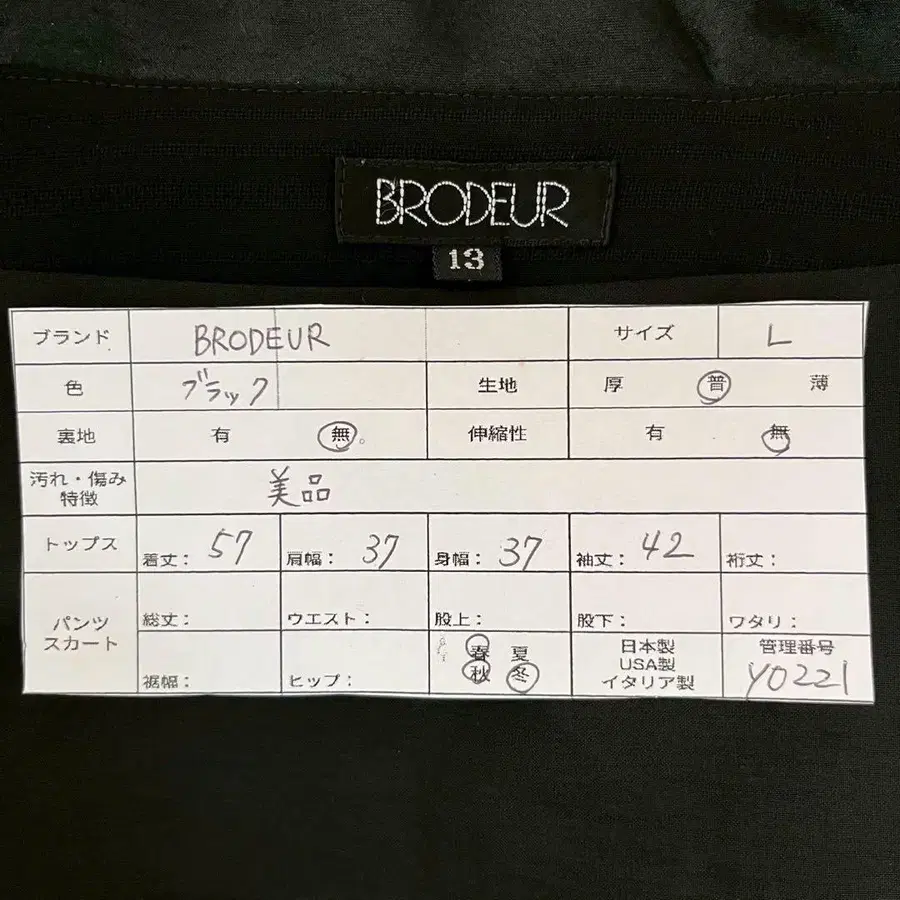 BRODEUR
13
ブランド BRODEUR サイズ L
色 ブラック 生地 厚 普 薄
裏地 有 無 伸縮性 有 無
汚れ・傷み
特徴 美品
トップス 着丈： 57 肩幅： 37 身幅： 37 袖丈： 42 裄丈：
パンツ
スカート
総丈： ウエスト： 股上： 股下： ワタリ：
裾幅： ヒップ：
春 夏
秋 冬
日本製
USA製
イタリア製
管理番号
Y0221